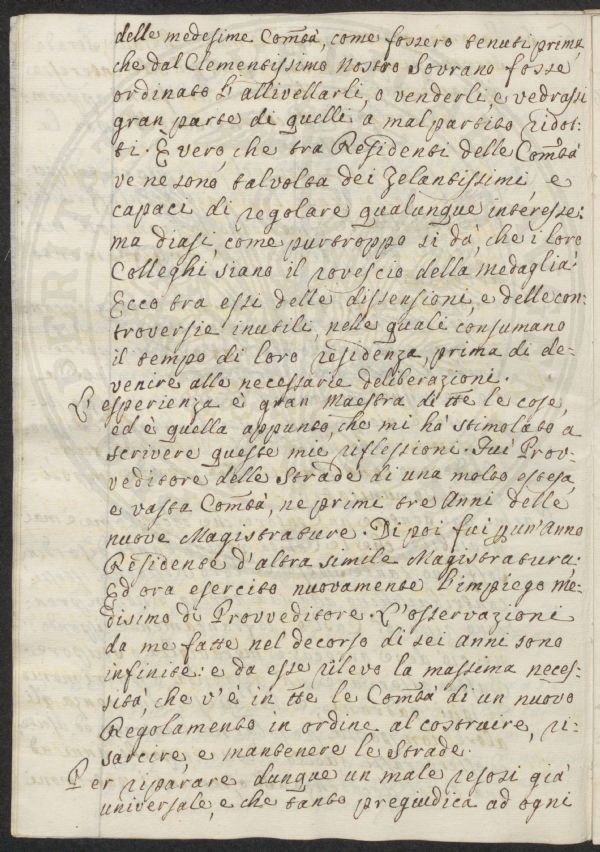 delle medesime Com̃tà, come fossero tenuti prima,
che dal Clementissimo Nostro Sovrano fosse
ordinato l'allivellarli, o venderli, e vedrassi
gran parte di quelli a mal partito ridot-
ti. È vero, che tra Residenti delle Com̃tà
ve ne sono talvolta dei Zelantissimi, e
capaci di regolare qualunque interesse:
ma diasi, come purtroppo si dà, che i loro
Colleghi siano il rovescio della medaglia:
Ecco tra essi delle dissensioni, e delle con:
troversie inutili, nelle quali consumano
il tempo di loro residenza, prima di de-
venire alle necessarie deliberazioni.
L'esperienza è gran Maestra di tt̃e le cose,
ed è quella appunto, che mi hà stimolato a
scrivere queste mie riflessioni. Fui Prov-
veditore delle Strade di una molto estesa,
e vasta Com̃tà, ne primi tre Anni delle
nuove Magistrature. Di poi fui p un'Anno
Residente d'altra simile Magistratura:
Ed ora esercito nuovamente l'impiego me-
disimo di Provveditore. L'osservazioni
da me fatte nel decorso di sei anni sono
infinite: e da esse rilevo la massima neces-
sità, che v'è in tt̃e le Com̃tà di un nuovo
Regolamento in ordine al costruire, ri-
sarcire, e mantenere le Strade.
Per riparare dunque un male resosi già
universale, e che tanto pregiudica ad ogni